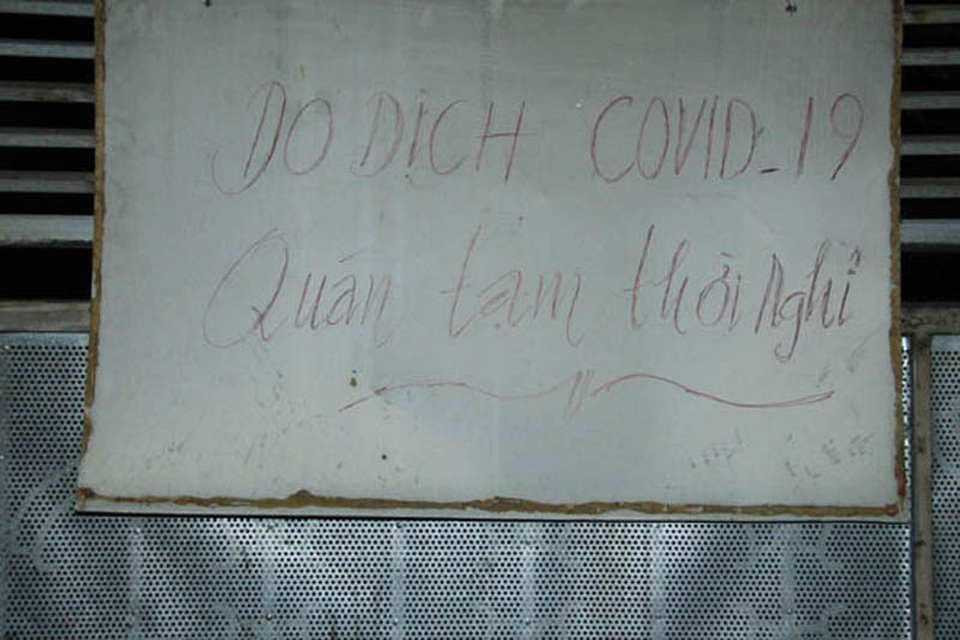 DO DỊCH COVID-19
Quán tạm thời Nghỉ